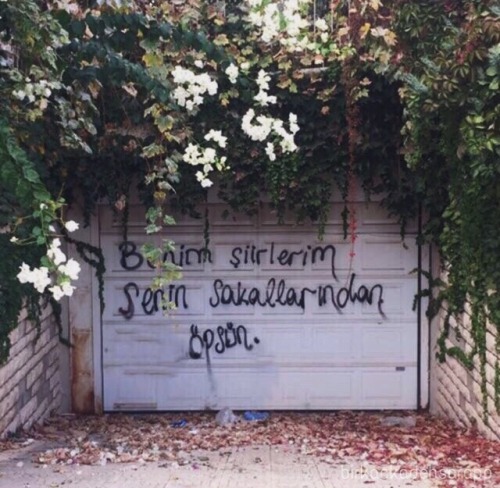 Benim şiirlerim
Senin sakallarından
öpsün.